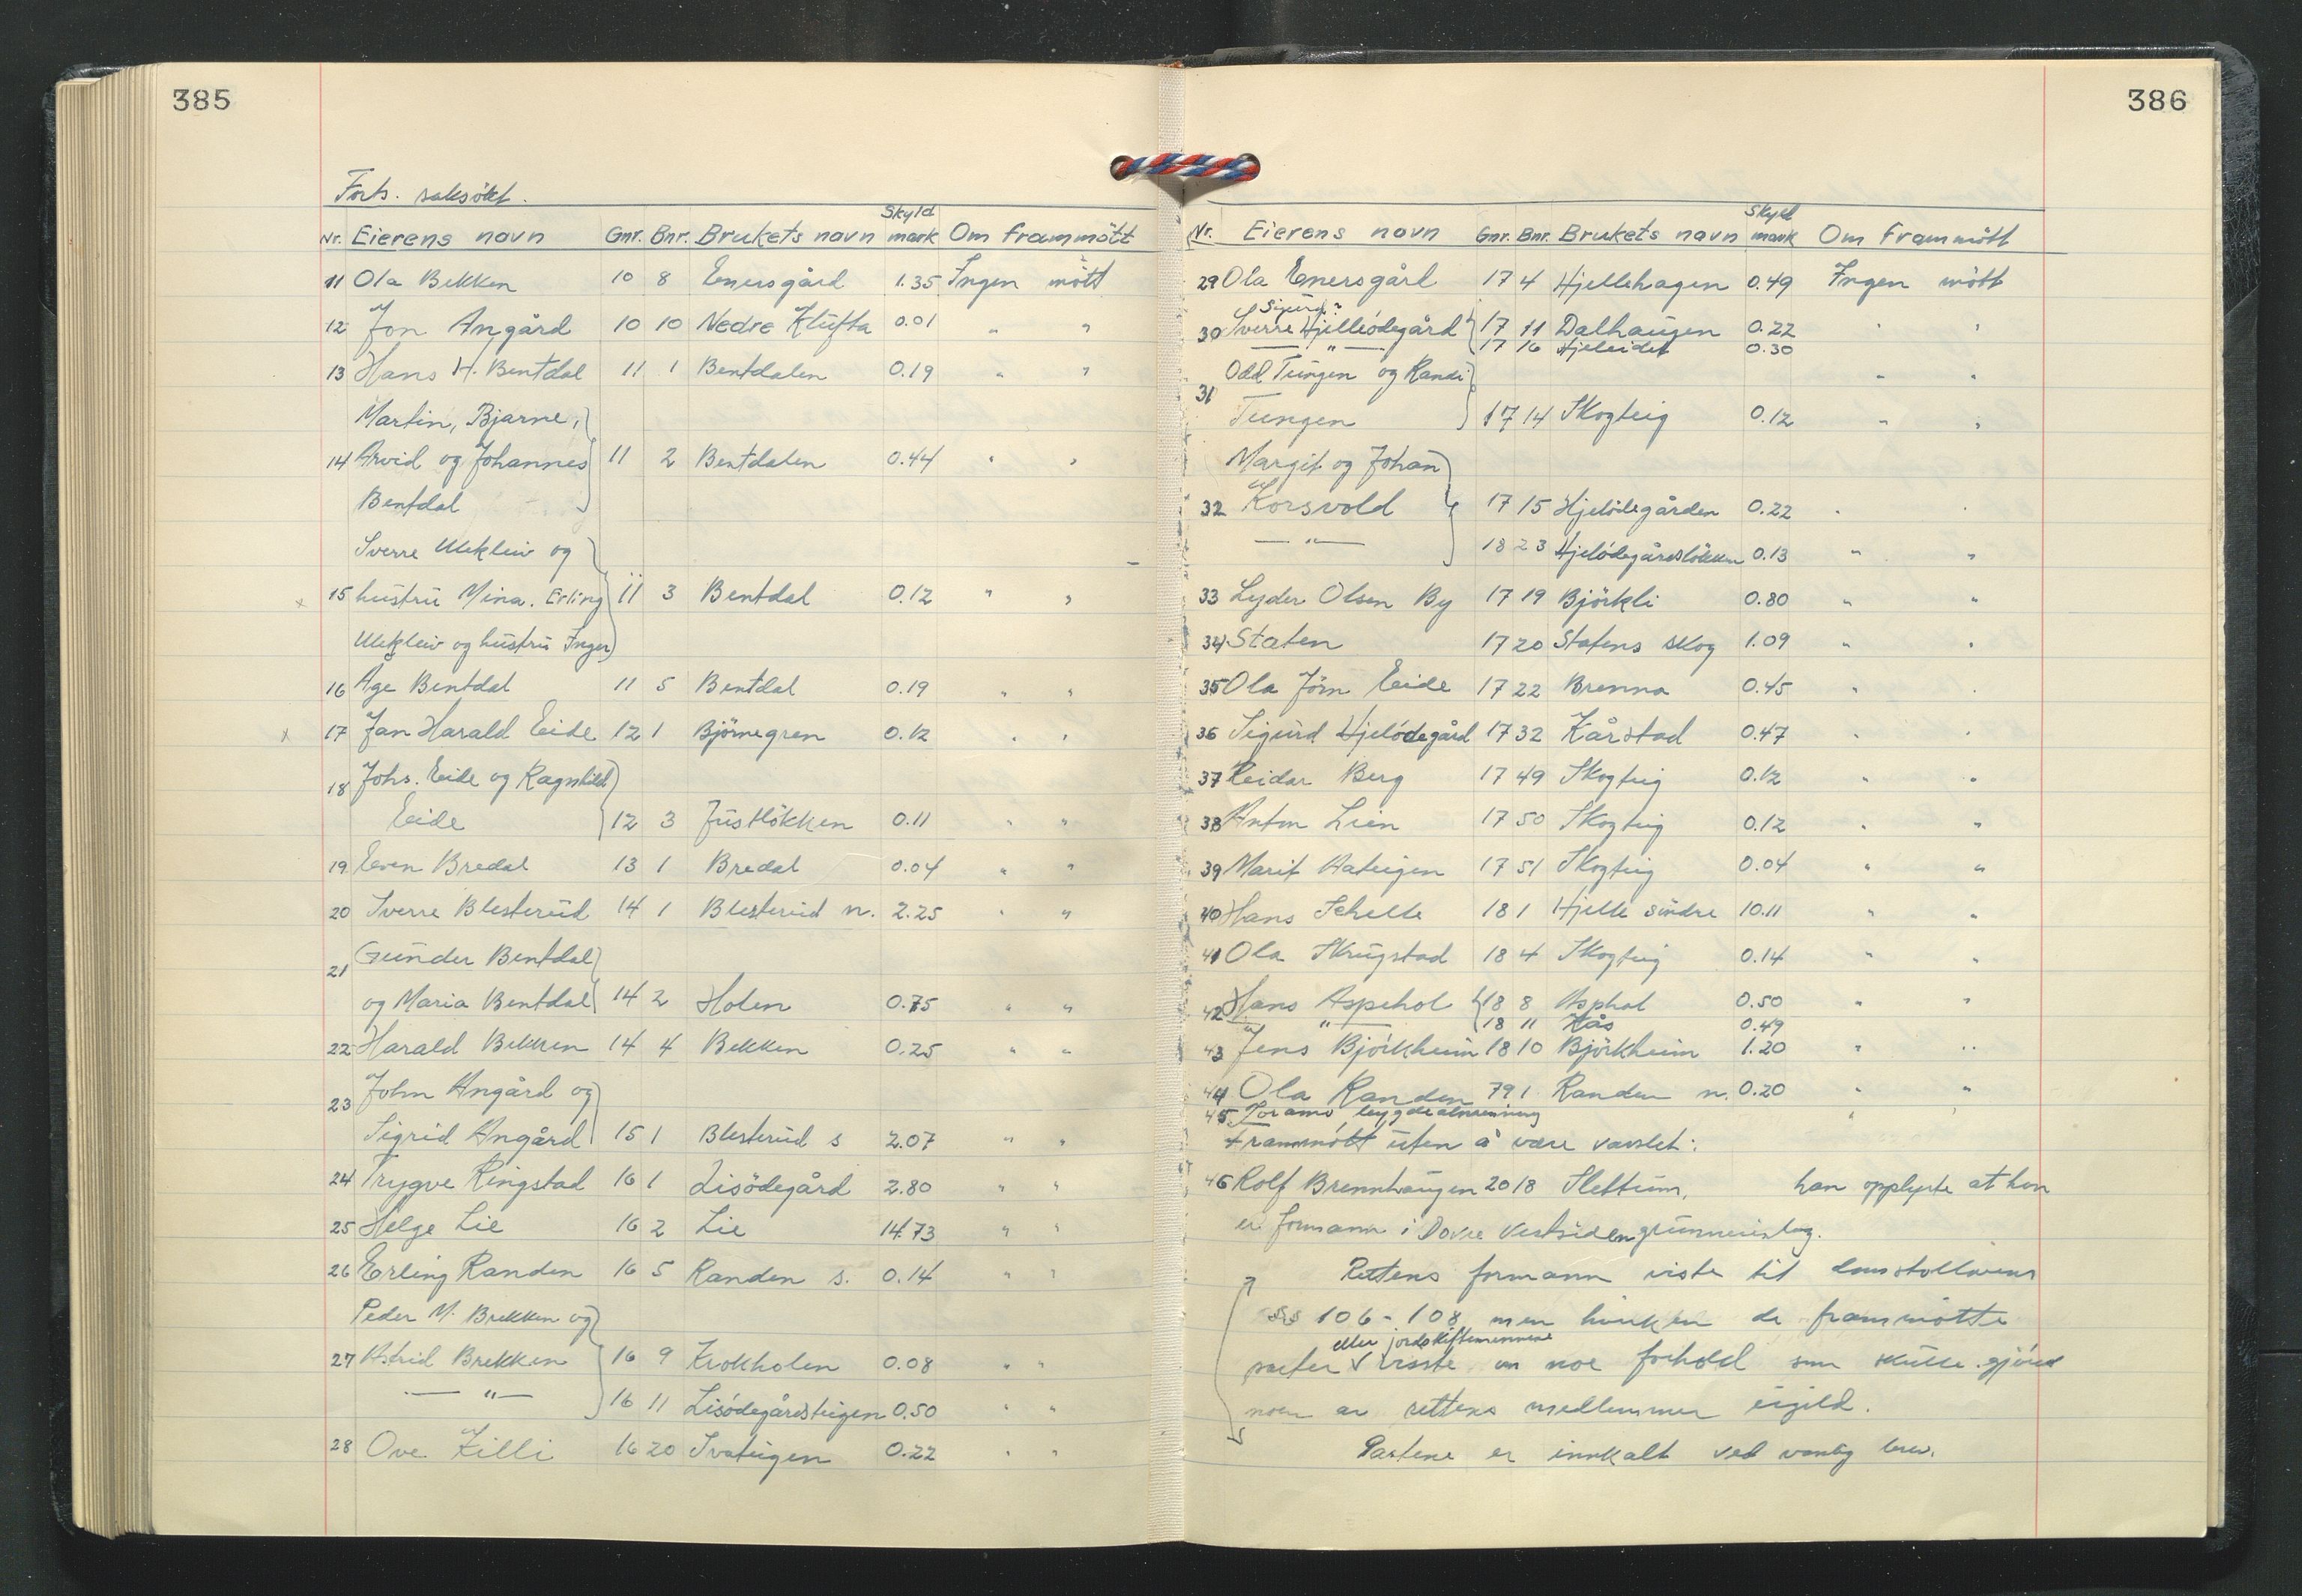 385
Forts. saksøkt.
Nr. Eierens navn Gnr. Bnr. Brukets navn Skyld mark Om frammött
11 Ola Bekken 10 8 Enersgård 1.35 Ingen mött
12 Jon Angård 10 10 Nedre Klufta 0.01 " "
13 Hans H. Bentdal 11 1 Bentdalen 0.19 " "
Martin, Bjarne,
14 Arvid og Johannes 11 2 Bentdalen 0.44 " "
Bentdal
Sverre Ulekleiv og
x 15 hustru Mina. Erling 11 3 Bentdal 0.12 " "
Ulekleiv og hustru Inger
16 Age Bentdal 11 5 Bentdal 0.19 " "
x 17 Jan Harald Eide 12 1 Björnegren 0.12 " "
18 Johs. Eide og Ragnhild
Eide 12 3 Justlökken 0.11 " "
19 Even Bredal 13 1 Bredal 0.04 " "
20 Sverre Blesterud 14 1 Blesterud n. 2.25 " "
21 Gunder Bentdal
og Maria Bentdal 14 2 Holen 0.75 " "
22 Harald Bekken 14 4 Bekken 0.25 " "
23 John Angård og
Sigrid Angård 15 1 Blesterud s 2.07 " "
24 Trygve Ringstad 16 1 Lisödegård 2.80 " "
25 Helge Lie 16 2 Lie 14.73 " "
26 Erling Randen 16 5 Randen s. 0.14 " "
Peder M. Brekken og
27 Astrid Brekken 16 9 Krokholen 0.08 " "
— " — 16 11 Lisödegårdsteigen 0.50 " "
28 Ove Killi 16 20 Svateigen 0.22 " "
386
Nr. Eierens navn Gnr. Bnr. Brukets navn Skyld mark Om Frammött
29 Ola Enersgård 17 4 Hjellehagen 0.49 Ingen mött
Sigurd?
30 Sverre Hjelleödegård 17 11 Dalhaugen 0.22 " "
— " — 17 16 Hjeleidet 0.30
Odd Tungen og Randi " "
31 Tungen 17 14 Skogteig 0.12 " "
Margit og Johan
32 Korsvold 17 15 Hjelödegården 0.22 " "
— " — 18 23 Hjelödegårdslökken 0.13 " "
33 Lyder Olsen By 17 19 Björkli 0.80 " "
34 Staten 17 20 Statens skog 1.09 " "
35 Ola Jörn Eide 17 22 Brenna 0.45 " "
36 Sigurd Hjelödegård 17 32 Kårstad 0.47 " "
37 Reidar Berg 17 49 Skogteig 0.12 " "
38 Anton Lien 17 50 Skogteig 0.12 " "
39 Marit Aateigen 17 51 Skogteig 0.04 " "
40 Hans Schelle 18 1 Hjelle söndre 10.11 " "
41 Ola Skrugstad 18 4 Skogteig 0.14 " "
42 Hans Aspehol 18 8 Asphol 0.50 " "
— " — 18 11 Kås 0.49
43 Jens Björkheim 18 10 Björkheim 1.20 " "
44 Ola Randen 79 1 Randen n. 0.20 " "
45 Joramo bygdealmenning " "
Frammött uten å være varslet:
46 Rolf Brennhaugen 20 18 Slettum, han opplyste at han
er formann i Dovre Vestsiden grunneierlag.
Rettens formann viste til domstollovens
§§ 106-108, men hverken de frammötte
eller jordskiftemennene
parter visste om noe forhold som skulle gjöre
noen av rettens medlemmer ugild.
Partene er innkalt ved vanlig brev.